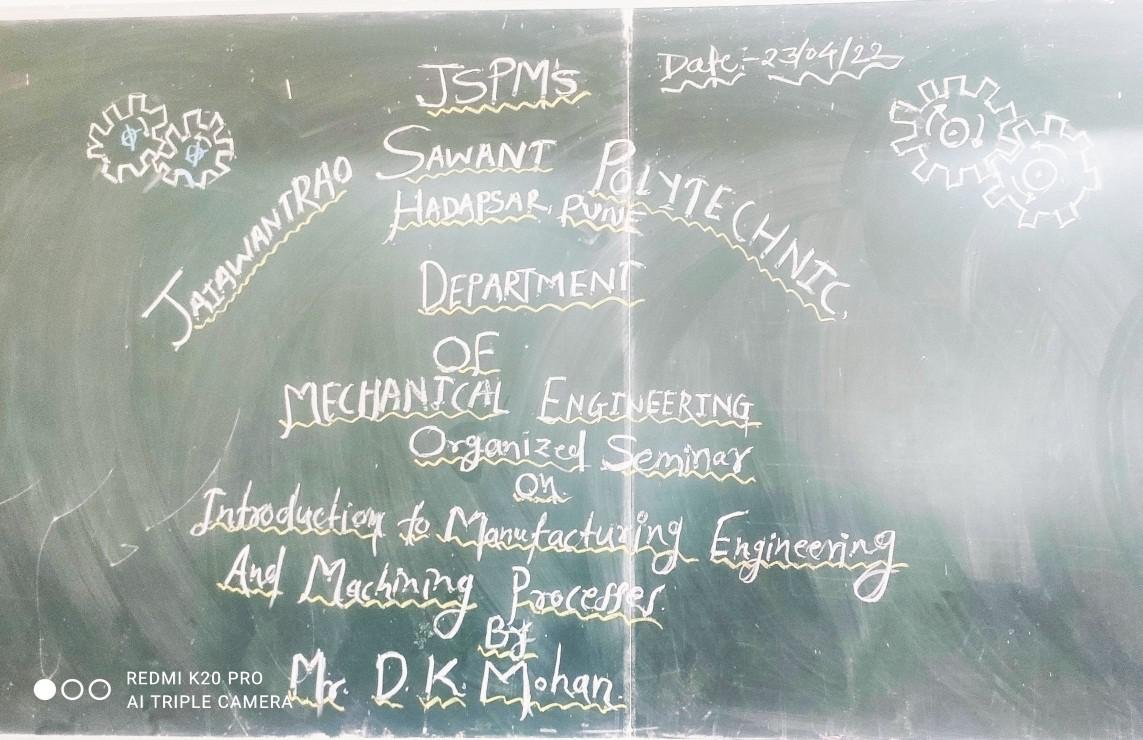 Date:-23/04/22
JSPM's
JAIAWANTRAO SAWANT POLYTECHNIC,
HADAPSAR, PUNE
DEPARTMENT
OF
MECHANICAL ENGINEERING
Organized Seminar
on
Introduction to Manufacturing Engineering
And Machining Processes
By
Mr. D. K. Mohan.
REDMI K20 PRO
AI TRIPLE CAMERA